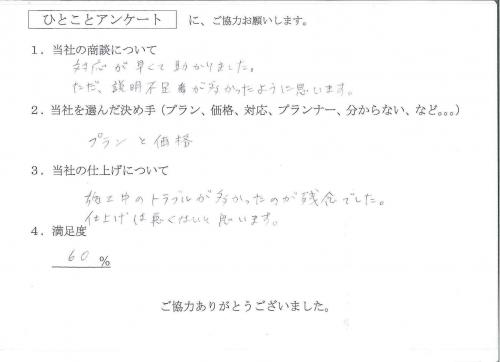 ひとことアンケート に、ご協力お願いします。
1．当社の商談について
対応が早くて助かりました。
ただ、説明不足が多かったように思います。
2．当社を選んだ決め手（プラン、価格、対応、プランナー、分からない、など。。。）
プランと価格
3．当社の仕上げについて
施工中のトラブルが多かったのが残念でした。
仕上げは悪くないと思います。
4．満足度
60 %
ご協力ありがとうございました。